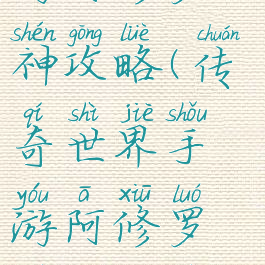 shén gōng lüè chuán
神攻略(传
qí shì jiè shǒu
奇世界手
yóu ā xiū luó
游阿修罗